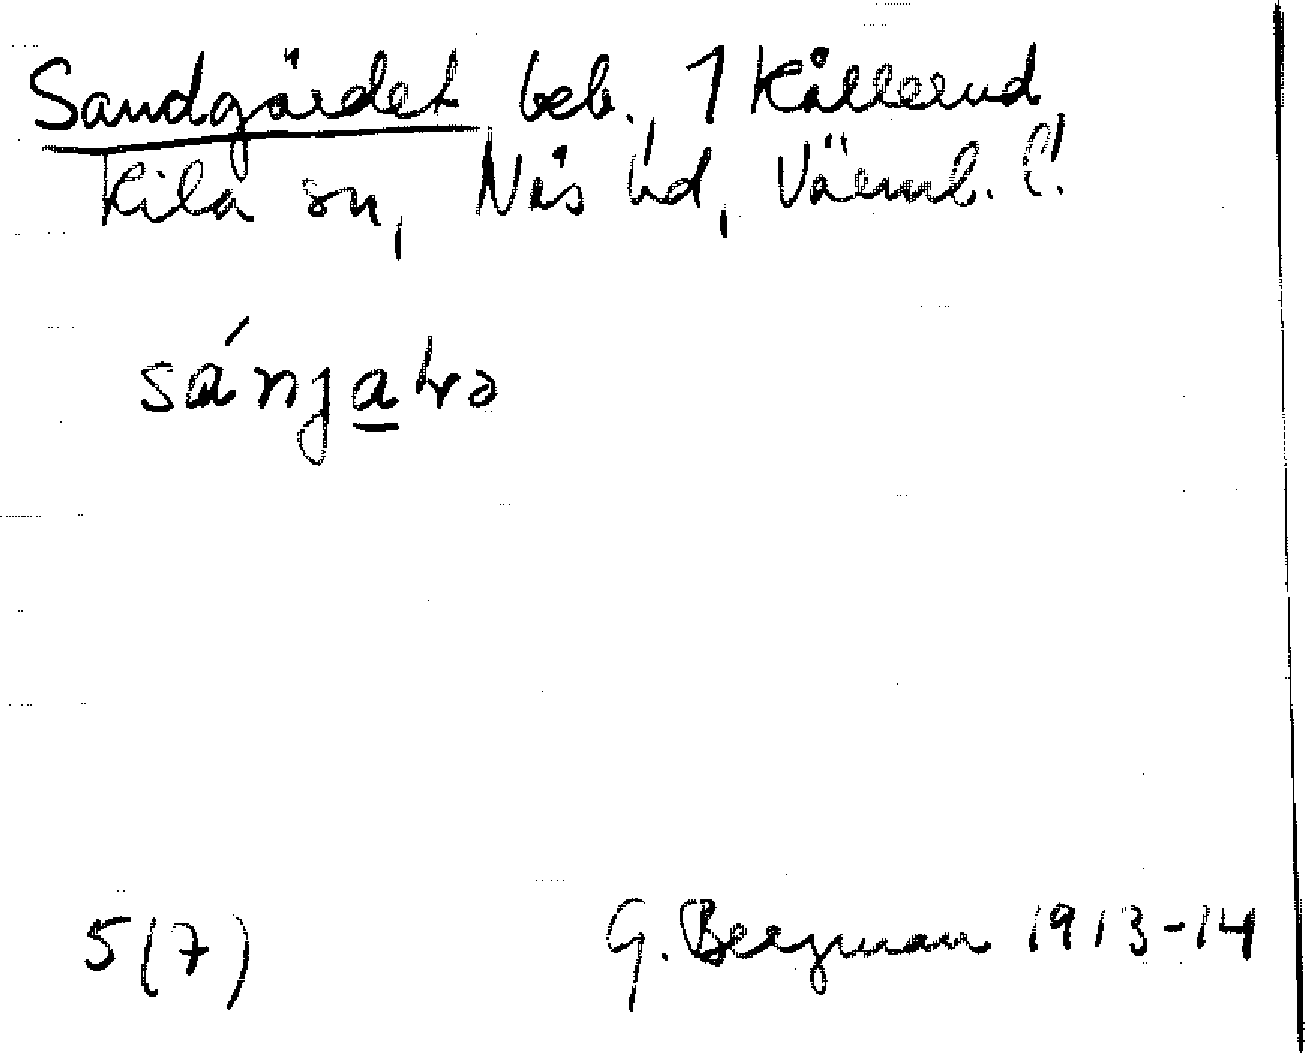 Sandgärdet beb. 1 Kållerud
Kila sn, Näs hd, Värml. l.
5(7)
G. Bergman 1913-14